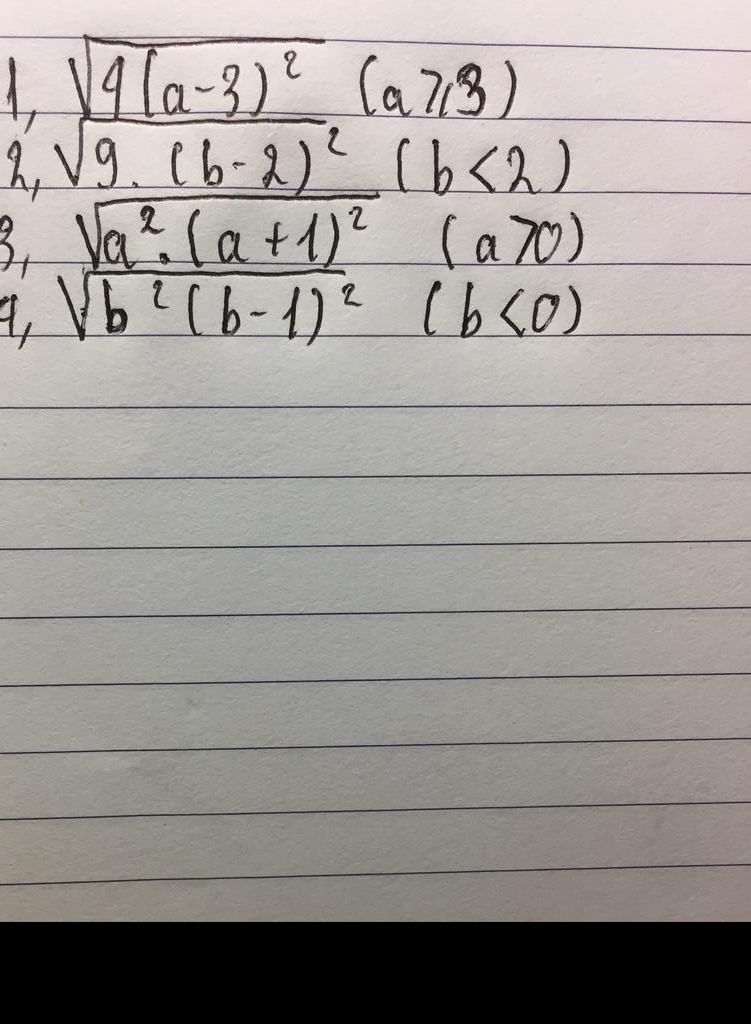 1, √4(a-3)² (a⩾3)
2, √9.(b-2)² (b<2)
3, √a².(a+1)² (a>0)
4, √b²(b-1)² (b<0)